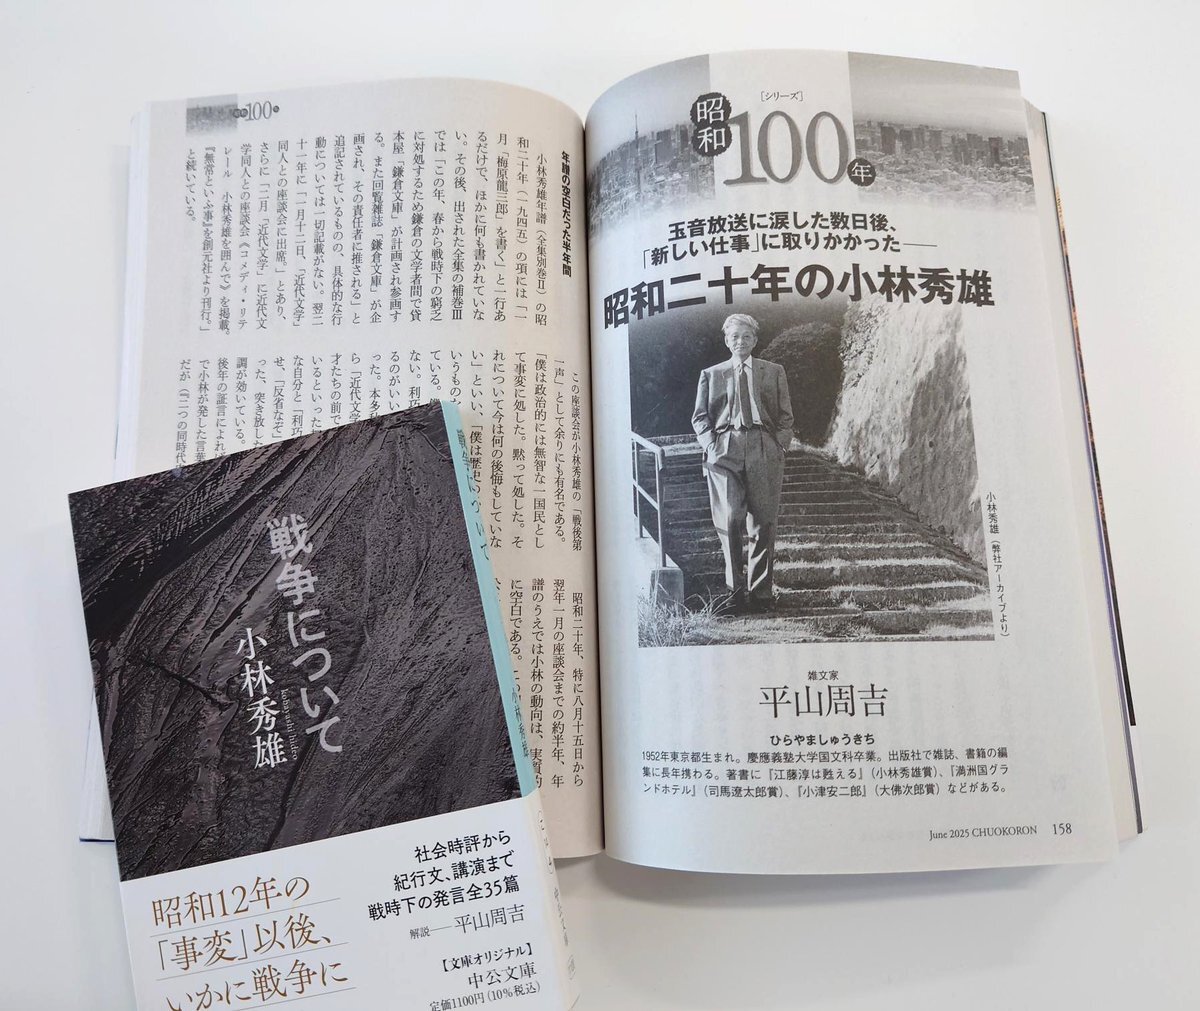 [シリーズ]
昭和
100年
玉音放送に涙した数日後、
「新しい仕事」に取りかかった——
昭和二十年の小林秀雄
小林秀雄(弊社アーカイブより)
雑文家
平山周吉
ひらやましゅうきち
1952年東京都生まれ。慶應義塾大学国文科卒業。出版社で雑誌、書籍の編
集に長年携わる。著書に『江藤淳は甦える』(小林秀雄賞)、『満洲国グラ
ンドホテル』(司馬遼太郎賞)、『小津安二郎』(大佛次郎賞)などがある。
June 2025 CHUOKORON 158
100
年譜の空白だった半年間
小林秀雄年譜(全集別巻Ⅱ)の昭
和二十年(一九四五)の項には「一
月「梅原龍三郎」を書く」と一行あ
るだけで、ほかに何も書かれていな
い。その後、出された全集の補巻Ⅲ
では「この年、春から戦時下の窮乏
に対処するため鎌倉の文学者間で貸
本屋「鎌倉文庫」が計画され参画す
る。また回覧雑誌「鎌倉文庫」が企
画され、その責任者に推される」と
追記されているものの、具体的な行
動については一切記載がない。翌二
十一年に「一月十二日、「近代文学」
同人との座談会に出席。」とあり、
さらに「二月「近代文学」に近代文
学同人との座談会《コメディ・リテ
レール 小林秀雄を囲んで》を掲載。
『無常といふ事』を創元社より刊行。」
と続いている。
この座談会が小林秀雄の「戦後第
一声」として余りにも有名である。
「僕は政治的には無智な一国民とし
て事変に処した。黙って処した。そ
れについて今は何の後悔もしていな
い」といい、「僕は歴史の
いうもの
ている。
ない。利巧
るのがいい
った。本多
ら「近代文学
才たちの前で
いるといった
な自分と「利巧
せ、「反省なぞ
った、突き放した
調が効いている。
後年の証言によれ
で小林が発した言葉
だが(『二つの同時代
昭和二十年、特に八月十五日から
翌年一月の座談会までの約半年、年
譜のうえでは小林の動向は、実質的
に空白である。
戦争について
小林秀雄
kobayashi hideo
社会時評から
紀行文、講演まで
戦時下の発言全35篇
解説——平山周吉
【文庫オリジナル】
中公文庫
定価1100円(10%税込)
昭和12年の
「事変」以後、
いかに戦争に